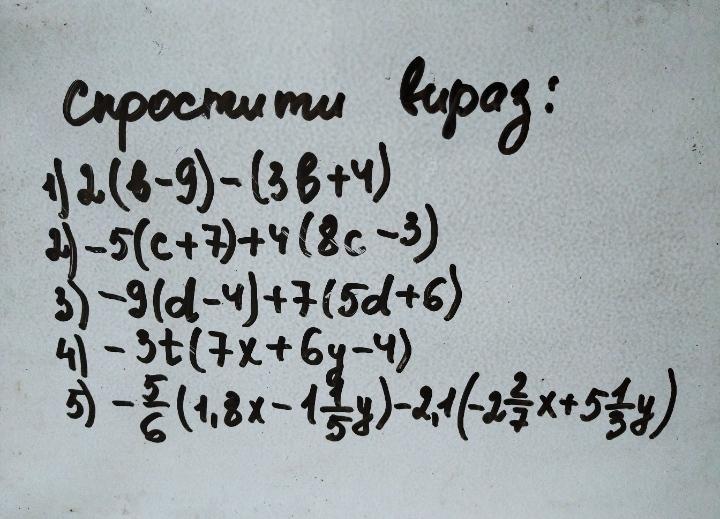 Спростити вираз:
1) 2(в-9)-(3в+4)
2) -5(с+7)+4(8с-3)
3) -9(d-4)+7(5d+6)
4) -3t(7x+6y-4)
5) -5/6(1,8x-1 1/5y)-2,1(-2 2/7x+5 1/3y)